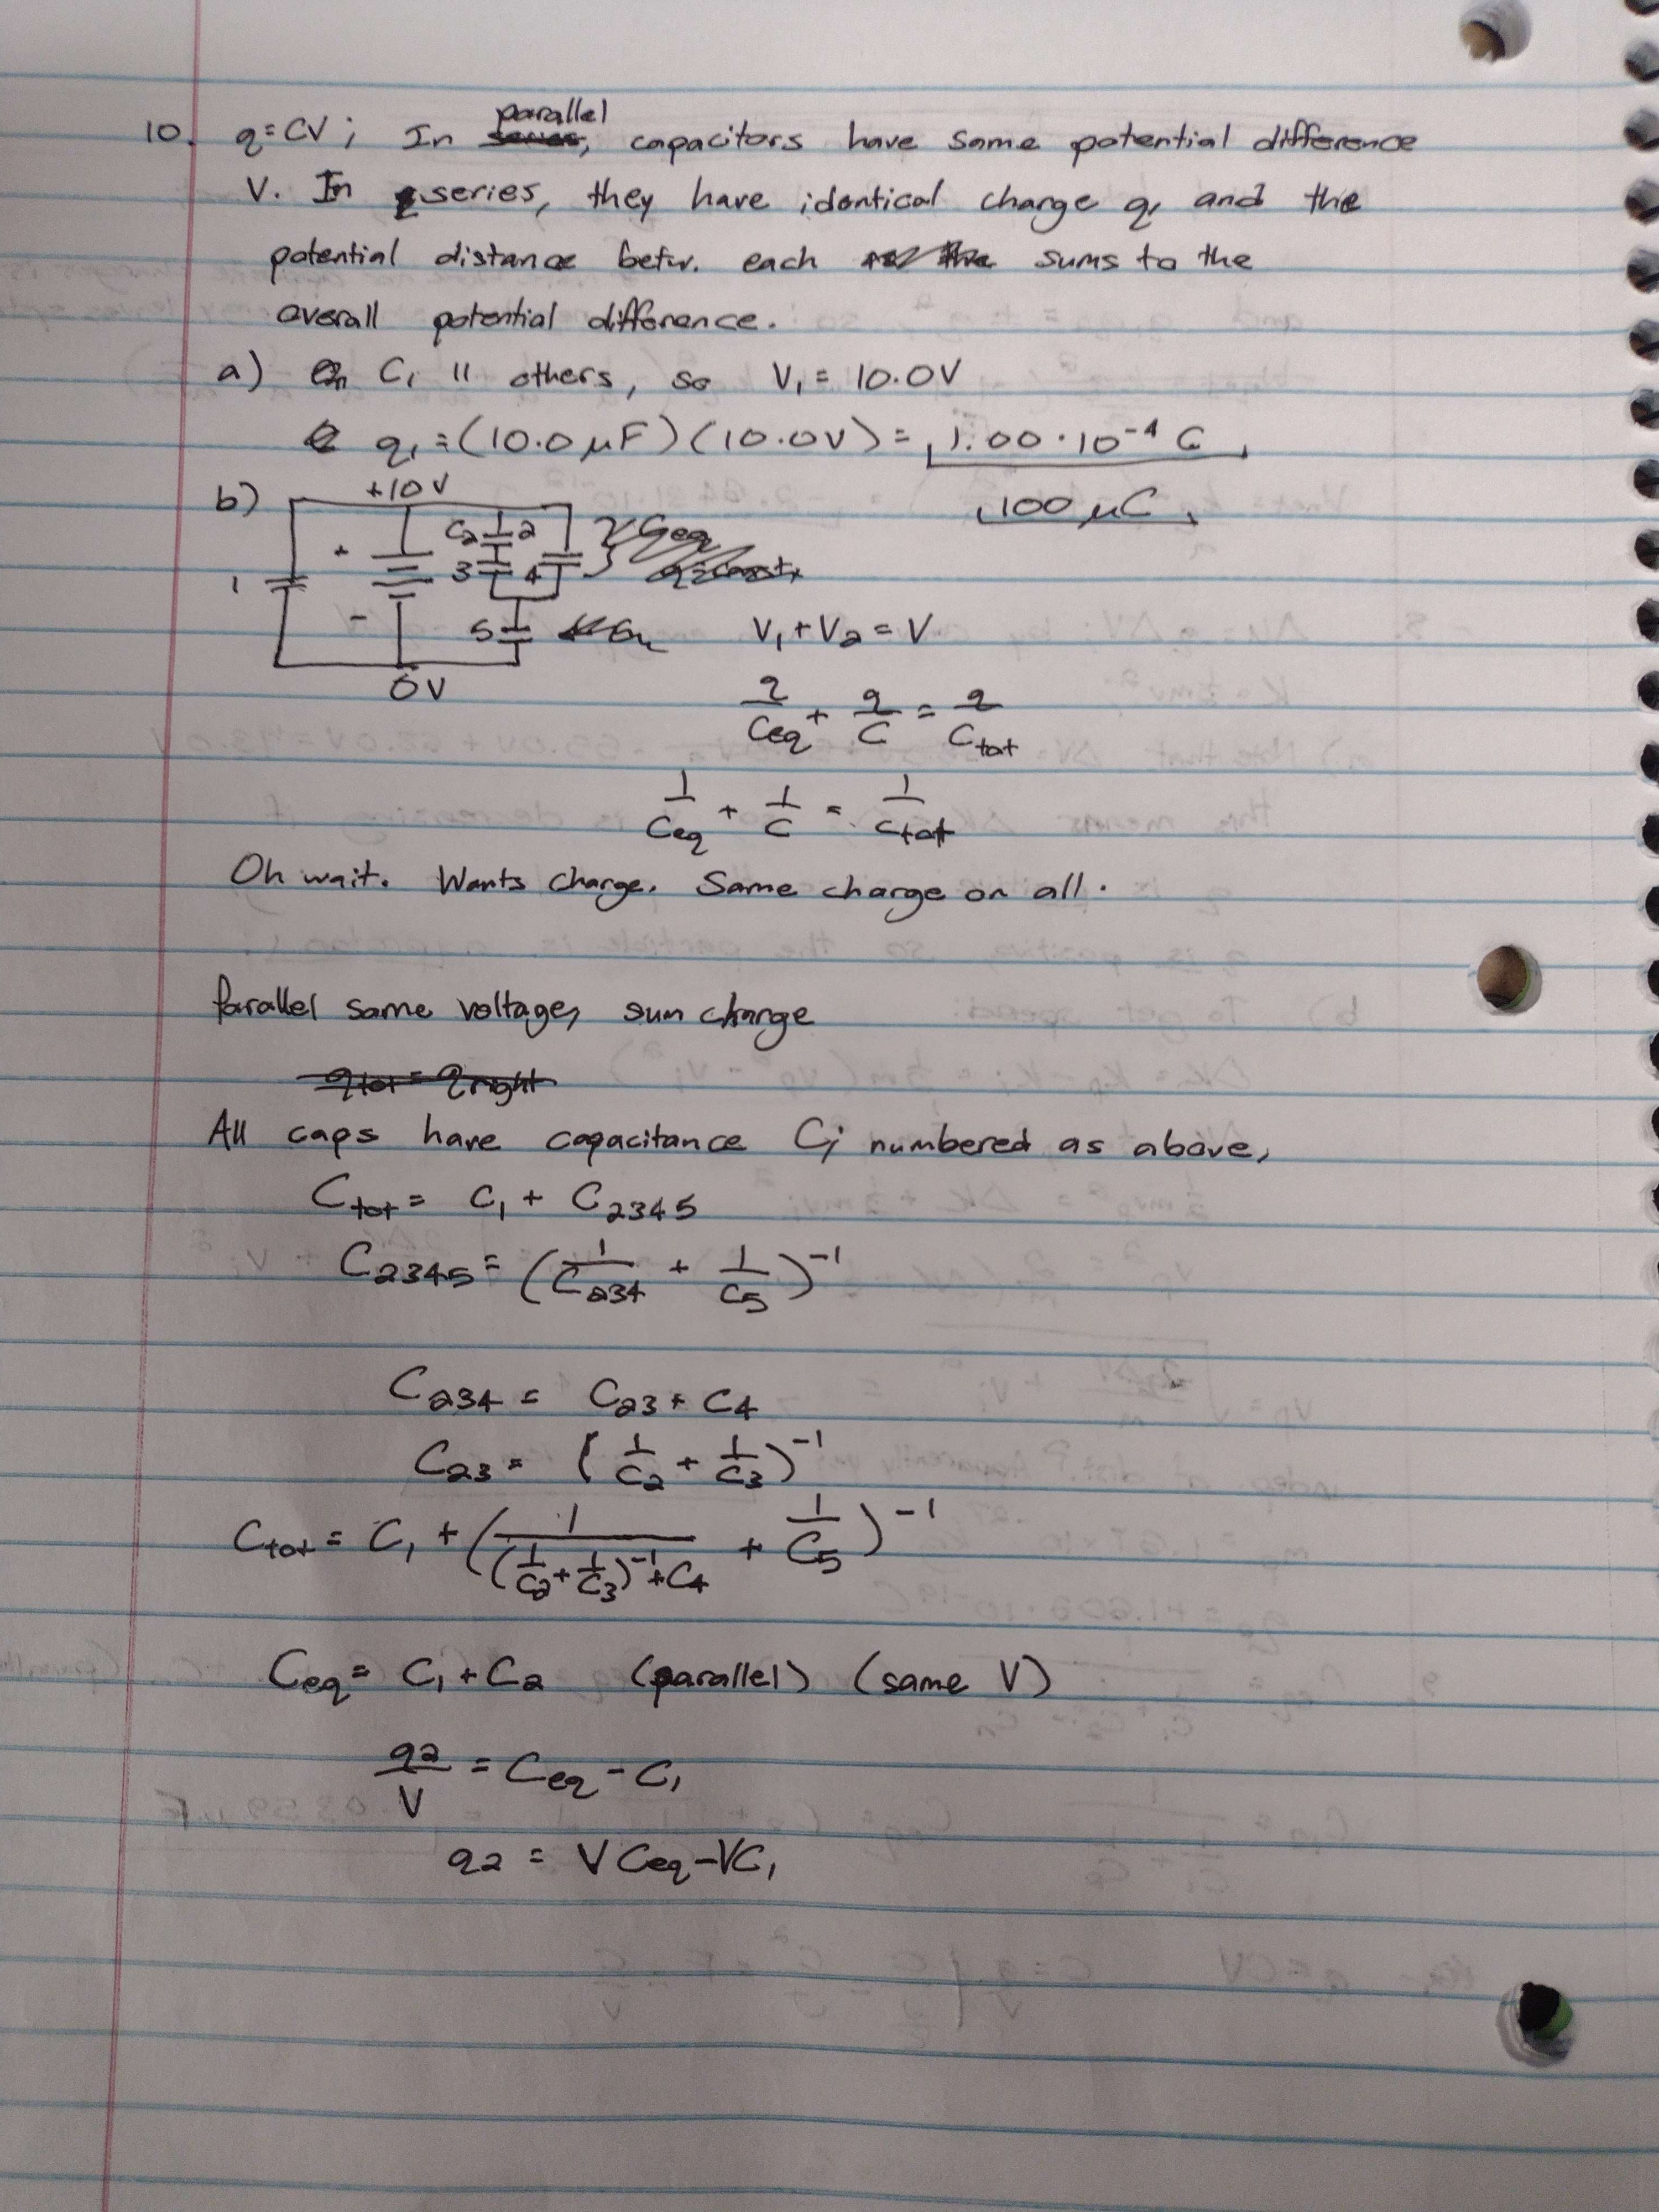 parallel
10. q=CV; In series, capacitors have same potential difference
V. In series, they have identical charge q, and the
potential distance betw. each sums to the
overall potential difference.
a) C₁ || others, so V₁ = 10.0V
q₁ = (10.0 μF)(10.0V) = 1.00·10⁻⁴ C
100 μC
b) +10V
C₂ 2 Ceq
+ 3 4
1
- 5 V₁+V₂=V
0V
q/Ceq + q/C = q/Ctot
1/Ceq + 1/C = 1/Ctot
Oh wait. Wants charge. Same charge on all.
Parallel same voltage, sum charge
qtot = qright
All caps have capacitance C; numbered as above,
Ctot = C₁ + C₂₃₄₅
C₂₃₄₅ = (1/C₂₃₄ + 1/C₅)⁻¹
C₂₃₄ = C₂₃ + C₄
C₂₃ = (1/C₂ + 1/C₃)⁻¹
Ctot = C₁ + (1/((1/C₂ + 1/C₃)⁻¹ + C₄) + 1/C₅)⁻¹
Ceq = C₁ + C₂ (parallel) (same V)
q₂/V = Ceq - C₁
q₂ = VCeq - VC₁